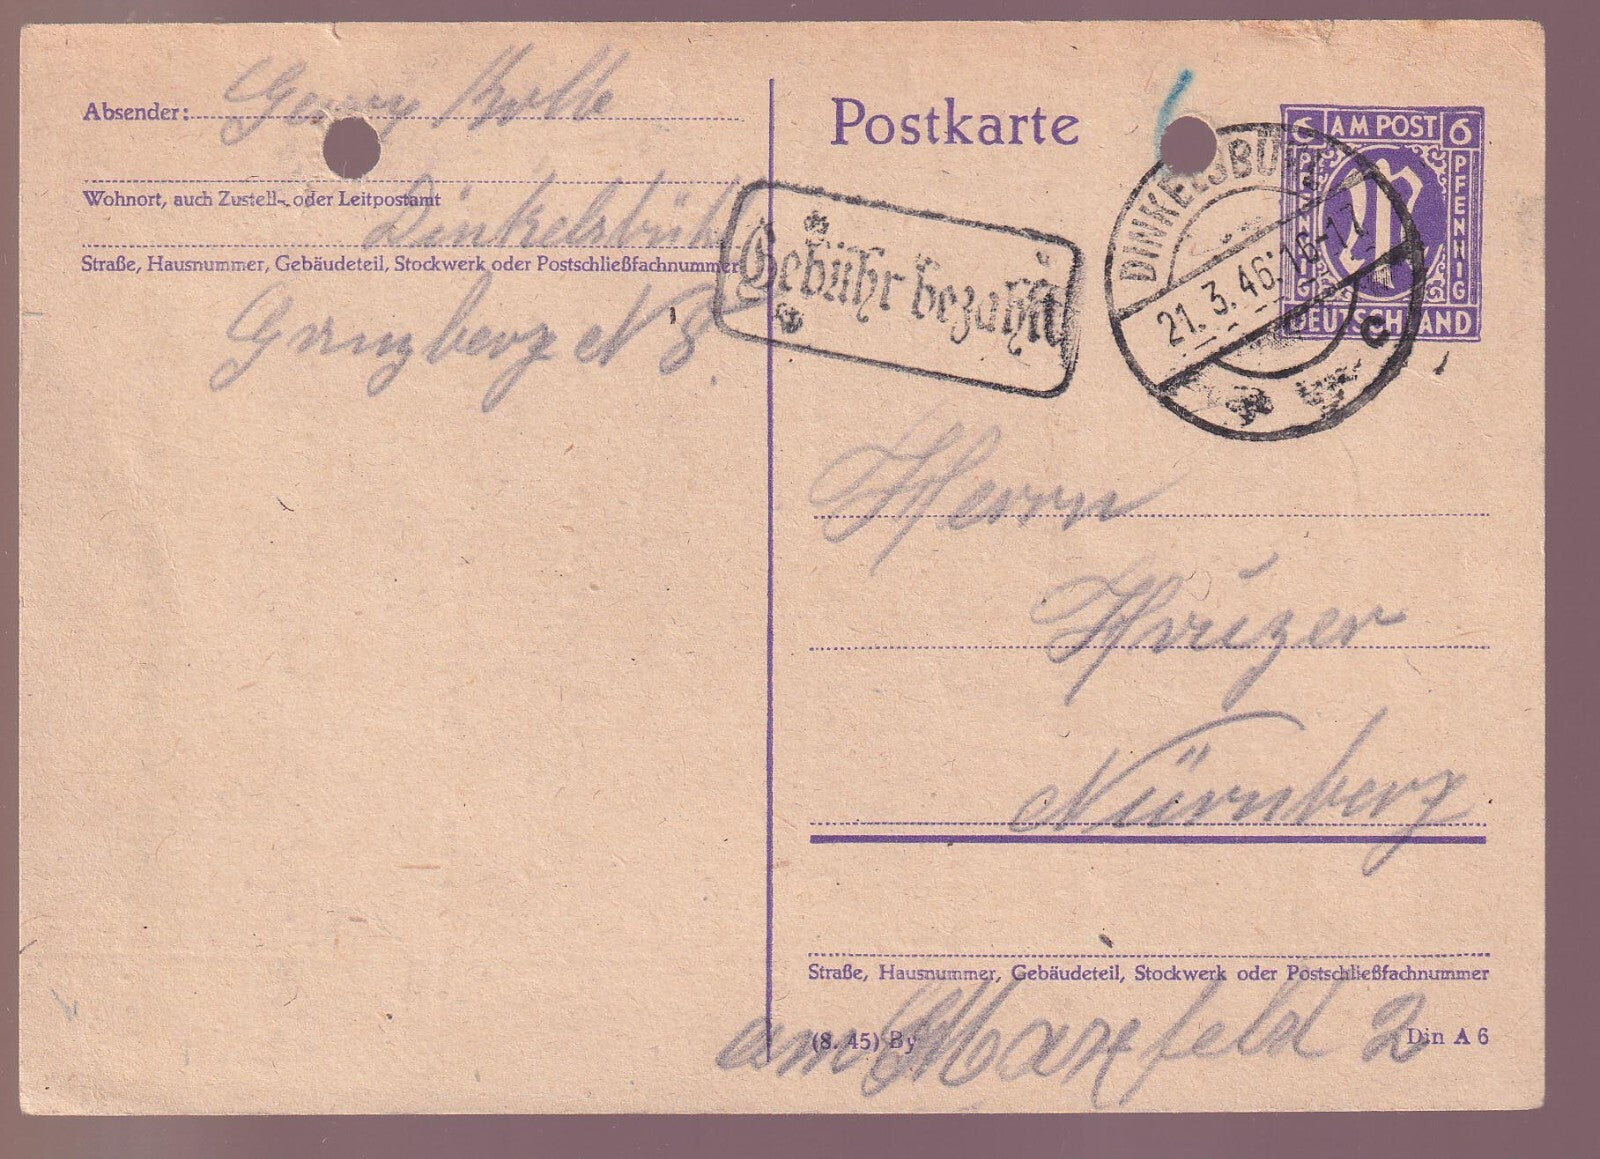 Absender: Georg
Wohnort, auch Zustell- oder Leitpostamt
Dinkelsbühl
Straße, Hausnummer, Gebäudeteil, Stockwerk oder Postschließfachnummer
N 8
Gebühr bezahlt
Postkarte
DINKELSBÜHL
21.3.46.16-17
c
6 AM POST 6
PFENNIG
PFENNIG
M
DEUTSCHLAND
Herrn
Nürnberg
Straße, Hausnummer, Gebäudeteil, Stockwerk oder Postschließfachnummer
am Marxfeld 2
(8. 45) By
Din A 6